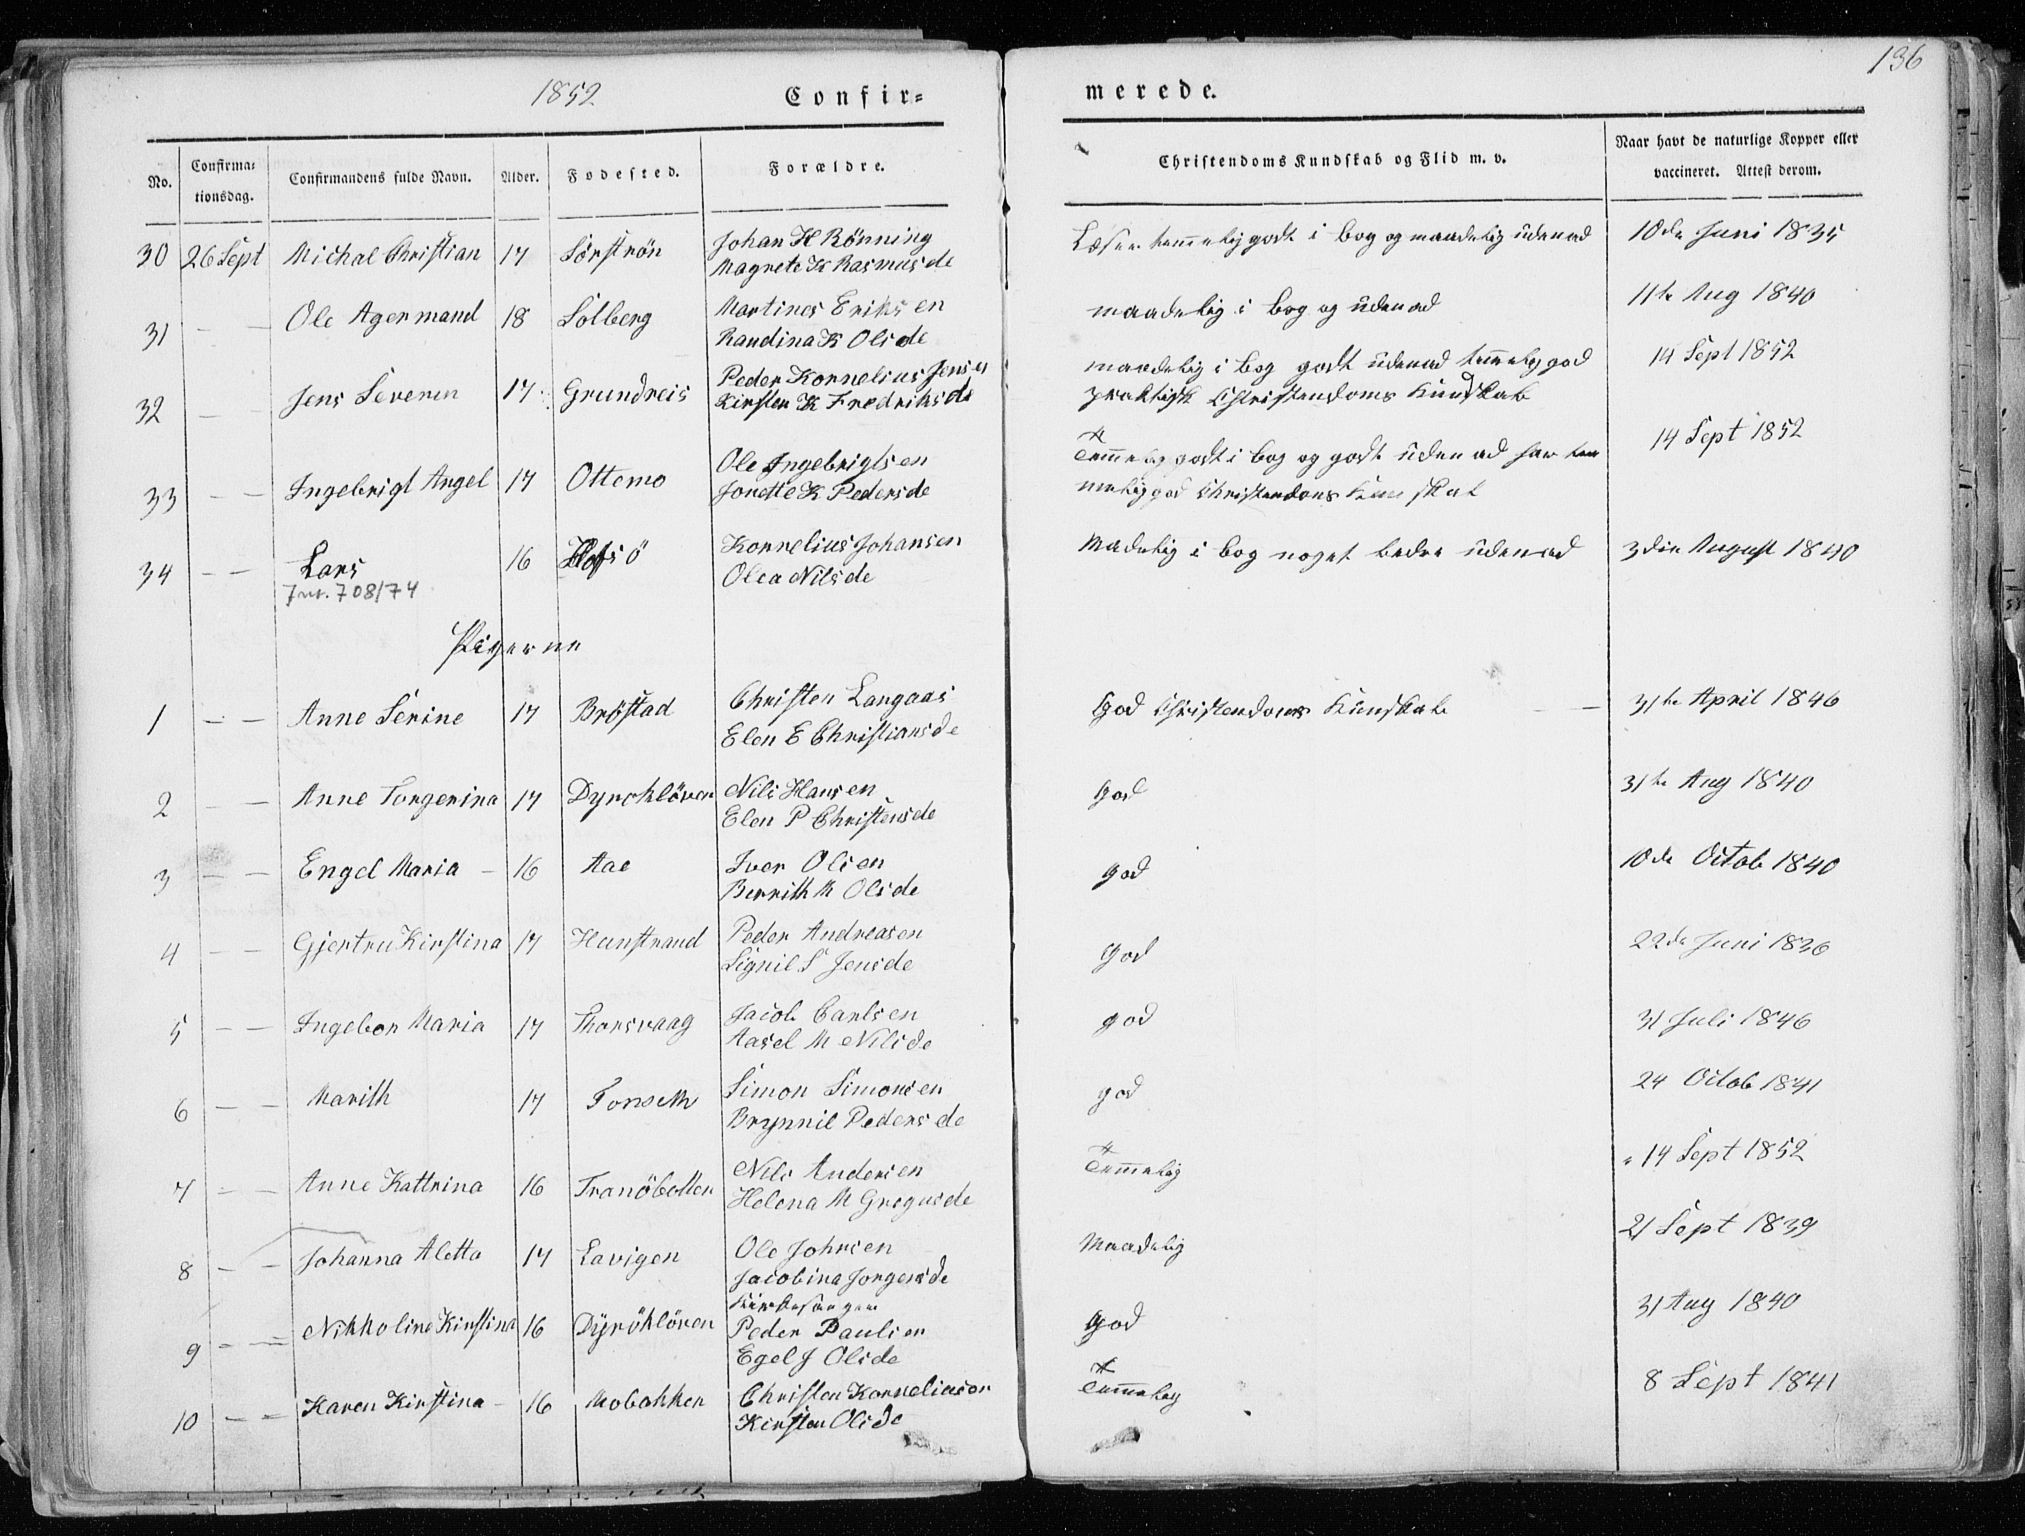 136
1852 Confir= merede.
No. Confirma= tionsdag. Confirmandens fulde Navn. Alder. Fodested. Forældre. Christendoms Kundskab og Flid m. v. Naar havt de naturlige Kopper eller vaccineret. Attest derom.
30 26 Sept Michal Christian 17 Sørstrøn Johan H Rönning Læser temmelig godt i bog og maadelig udenad 10de Juni 1835
Magrete K Rasmusde
31 — — Ole Agermand 18 Solberg Martines Eriksen maadelig i bog og udenad 11te Aug 1840
Randina K Olsde
32 — Jens Severin 17 Grundreis Peder Kornelius Jensen maadelig i bog godt udenad temelig god 14 Sept 1852
Kirsten K Fredriksde praktisk Christendoms Kundskab
33 — — Ingebrigt Angel 17 Ottemo Ole Ingebrigtsen Temmelig godt i bog og godt uden ad har tem 14 Sept 1852
Jonette K Pedersde melig god Christendoms Kunskab
34 — — Lars 16 Hofsö Kornelius Johansen Madelig i bog noget bedre udenad 3die August 1840
Jnr. 708/74 Olea Nilsde
Pigerne
1 — — Anne Serine 17 Bröstad Christen Langaas God Christendoms Kunskab — 31te April 1846
Elen E Christiansde
2 — — Anne Torgerina 17 Dyröklöven Nils Hansen God 31te Aug 1840
Elen P Christensde
3 — — Engel Maria — 16 Aae Iver Olsen god 10de Octob 1840
Berrith M Olsde
4 — — Gjertru Kirstina 17 Hunstrand Peder Andreasen God 22de Juni 1836
Signil S Jensde
5 — — Ingebor Maria 17 Thorsvaag Jacob Carlsen god 31 Juli 1846
Aasel M Nilsde
6 — — Marith 17 Fonseth Simon Simonsen god 24 Octob 1841
Brynnil Pedersde
7 — — Anne Kattrina 16 Tranöbotten Nils Andersen Temmelig 14 Sept 1852
Helena M Gregusde
8 — — Johanna Aletta 17 Lavigen Ole Johnsen Maadelig 21 Sept 1839
Jacobina Jorgensde
Kirkesanger
9 — — Nikkoline Kirstina 16 Dyröklöven Peder Paulsen God 31 Aug 1840
Egel J Olsde
10 — — Karen Kirstina — 16 Mobakken Christen Korneliuson Temmelig 8 Sept 1841
Kirsten Olsde